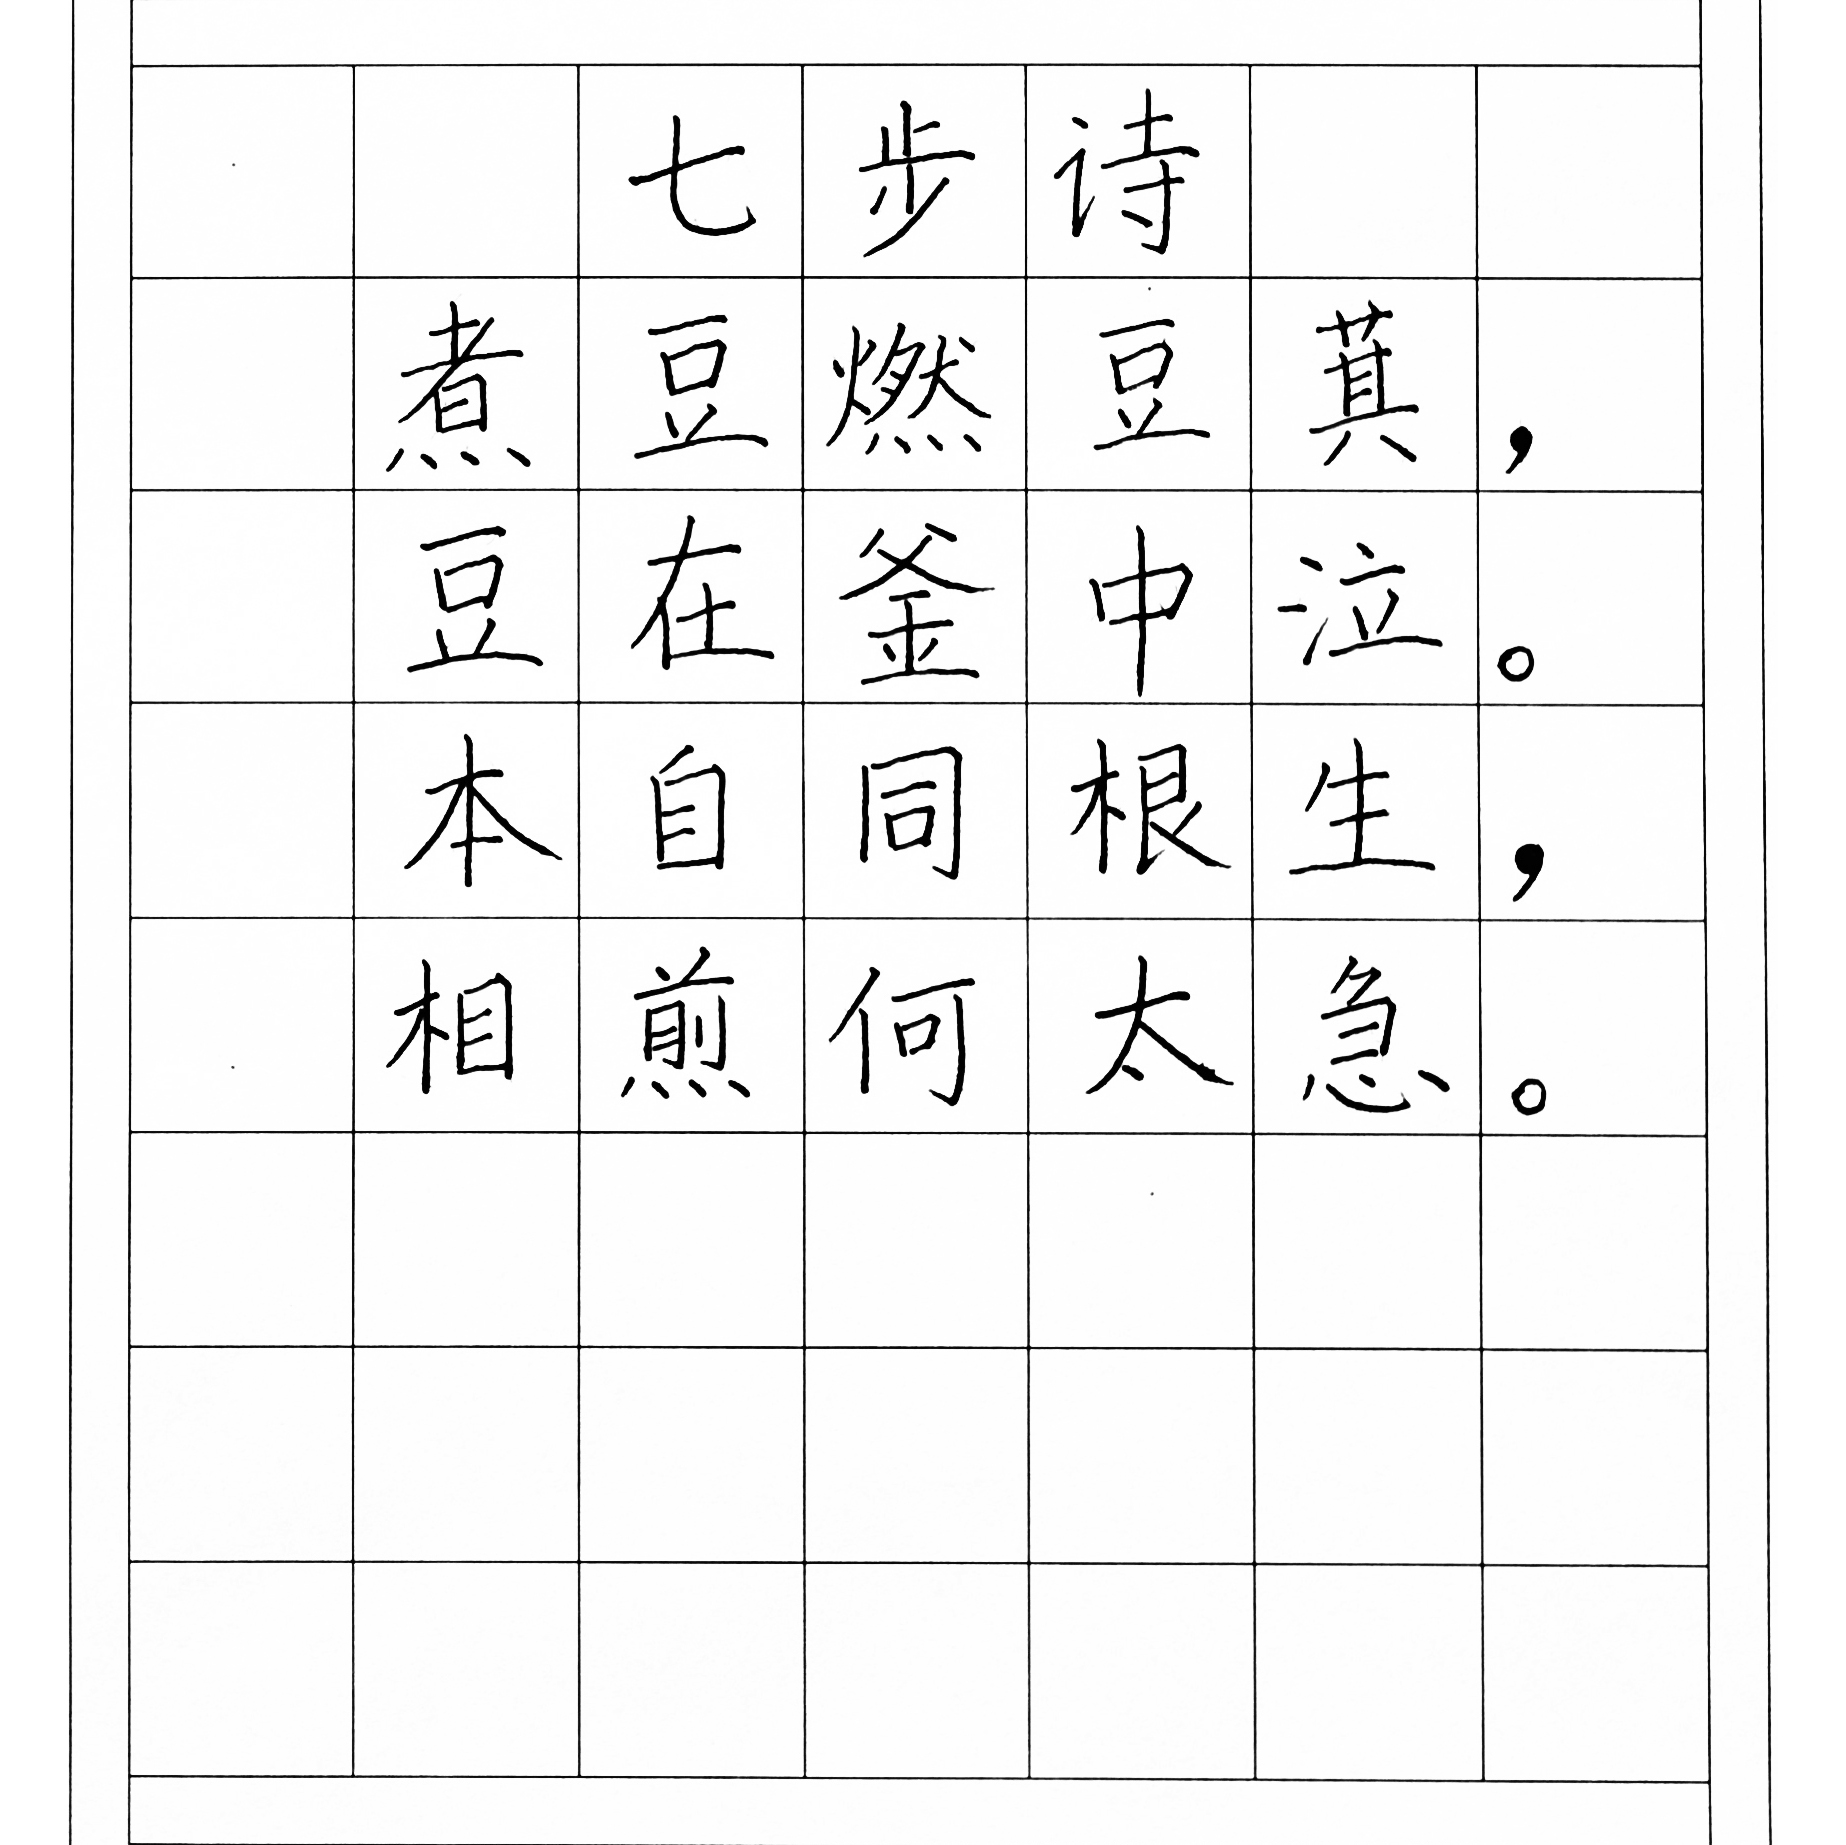 七步诗
煮豆燃豆萁，
豆在釜中泣。
本自同根生，
相煎何太急。